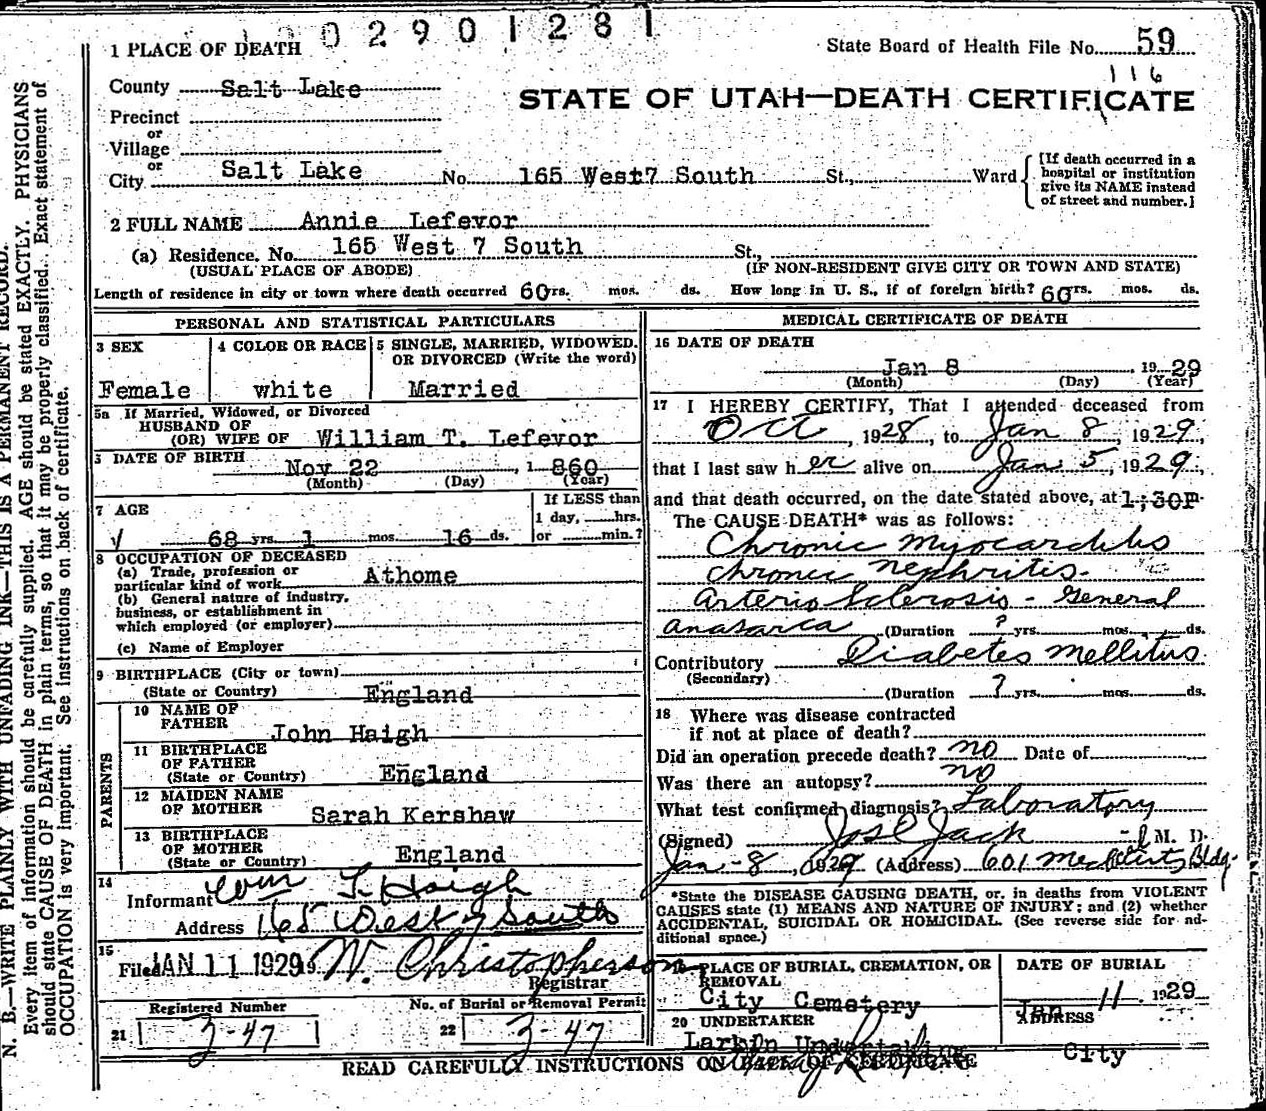 0 2 9 0 1 2 8 1
1 PLACE OF DEATH
State Board of Health File No. 59
116
County Salt Lake
STATE OF UTAH—DEATH CERTIFICATE
Precinct
or
Village
or
City Salt Lake No. 165 West7 South St., Ward
[If death occurred in a hospital or institution give its NAME instead of street and number.]
2 FULL NAME Annie Lefevor
(a) Residence. No. 165 West 7 South St.,
(USUAL PLACE OF ABODE) (IF NON-RESIDENT GIVE CITY OR TOWN AND STATE)
Length of residence in city or town where death occurred 60 yrs. mos. ds. How long in U. S., if of foreign birth? 60 yrs. mos. ds.
PERSONAL AND STATISTICAL PARTICULARS
3 SEX
Female
4 COLOR OR RACE
white
5 SINGLE, MARRIED, WIDOWED, OR DIVORCED (Write the word)
Married
5a If Married, Widowed, or Divorced
HUSBAND OF
(OR) WIFE OF William T. Lefevor
DATE OF BIRTH
Nov 22, 1 860
(Month) (Day) (Year)
7 AGE
68 yrs. 1 mos. 16 ds.
If LESS than
1 day, hrs.
or min.?
8 OCCUPATION OF DECEASED
(a) Trade, profession or
particular kind of work Athome
(b) General nature of industry,
business, or establishment in
which employed (or employer)
(c) Name of Employer
9 BIRTHPLACE (City or town)
(State or Country) England
PARENTS
10 NAME OF
FATHER
John Haigh
11 BIRTHPLACE
OF FATHER
(State or Country) England
12 MAIDEN NAME
OF MOTHER Sarah Kershaw
13 BIRTHPLACE
OF MOTHER
(State or Country) England
14
Informant Wm T. Haigh
Address 165 West 7 South
15
Filed JAN 11 1929 W. Christopherson
Registrar
Registered Number
21 3-47
No. of Burial or Removal Permit
22 3-47
MEDICAL CERTIFICATE OF DEATH
16 DATE OF DEATH
Jan 8 19 29
(Month) (Day) (Year)
17 I HEREBY CERTIFY, That I attended deceased from
Oct, 1928, to Jan 8, 1929,
that I last saw her alive on Jan 5, 1929,
and that death occurred, on the date stated above, at 1;30P
The CAUSE DEATH* was as follows:
Chronic Myocarditis
Chronic Nephritis
Arterio Sclerosis - General
Anasarca (Duration ? yrs. mos. ds.
Contributory Diabetes Mellitus
(Secondary)
(Duration ? yrs. mos. ds.
18 Where was disease contracted
if not at place of death?
Did an operation precede death? no Date of
Was there an autopsy? no
What test confirmed diagnosis? Laboratory
(Signed) Jos E Jack M. D.
Jan-8, 1929 (Address) 601 Bldg.
*State the DISEASE CAUSING DEATH, or, in deaths from VIOLENT
CAUSES state (1) MEANS AND NATURE OF INJURY; and (2) whether
ACCIDENTAL, SUICIDAL OR HOMICIDAL. (See reverse side for ad-
ditional space.)
PLACE OF BURIAL, CREMATION, OR
REMOVAL
City Cemetery
DATE OF BURIAL
Jan 11 1929
20 UNDERTAKER
Larkin Undertaking
ADDRESS
City
READ CAREFULLY INSTRUCTIONS ON BACK OF CERTIFICATE
N. B.—WRITE PLAINLY WITH UNFADING INK—THIS IS A PERMANENT RECORD.
Every item of information should be carefully supplied. AGE should be stated EXACTLY. PHYSICIANS
should state CAUSE OF DEATH in plain terms, so that it may be properly classified. Exact statement of
OCCUPATION is very important. See instructions on back of certificate.